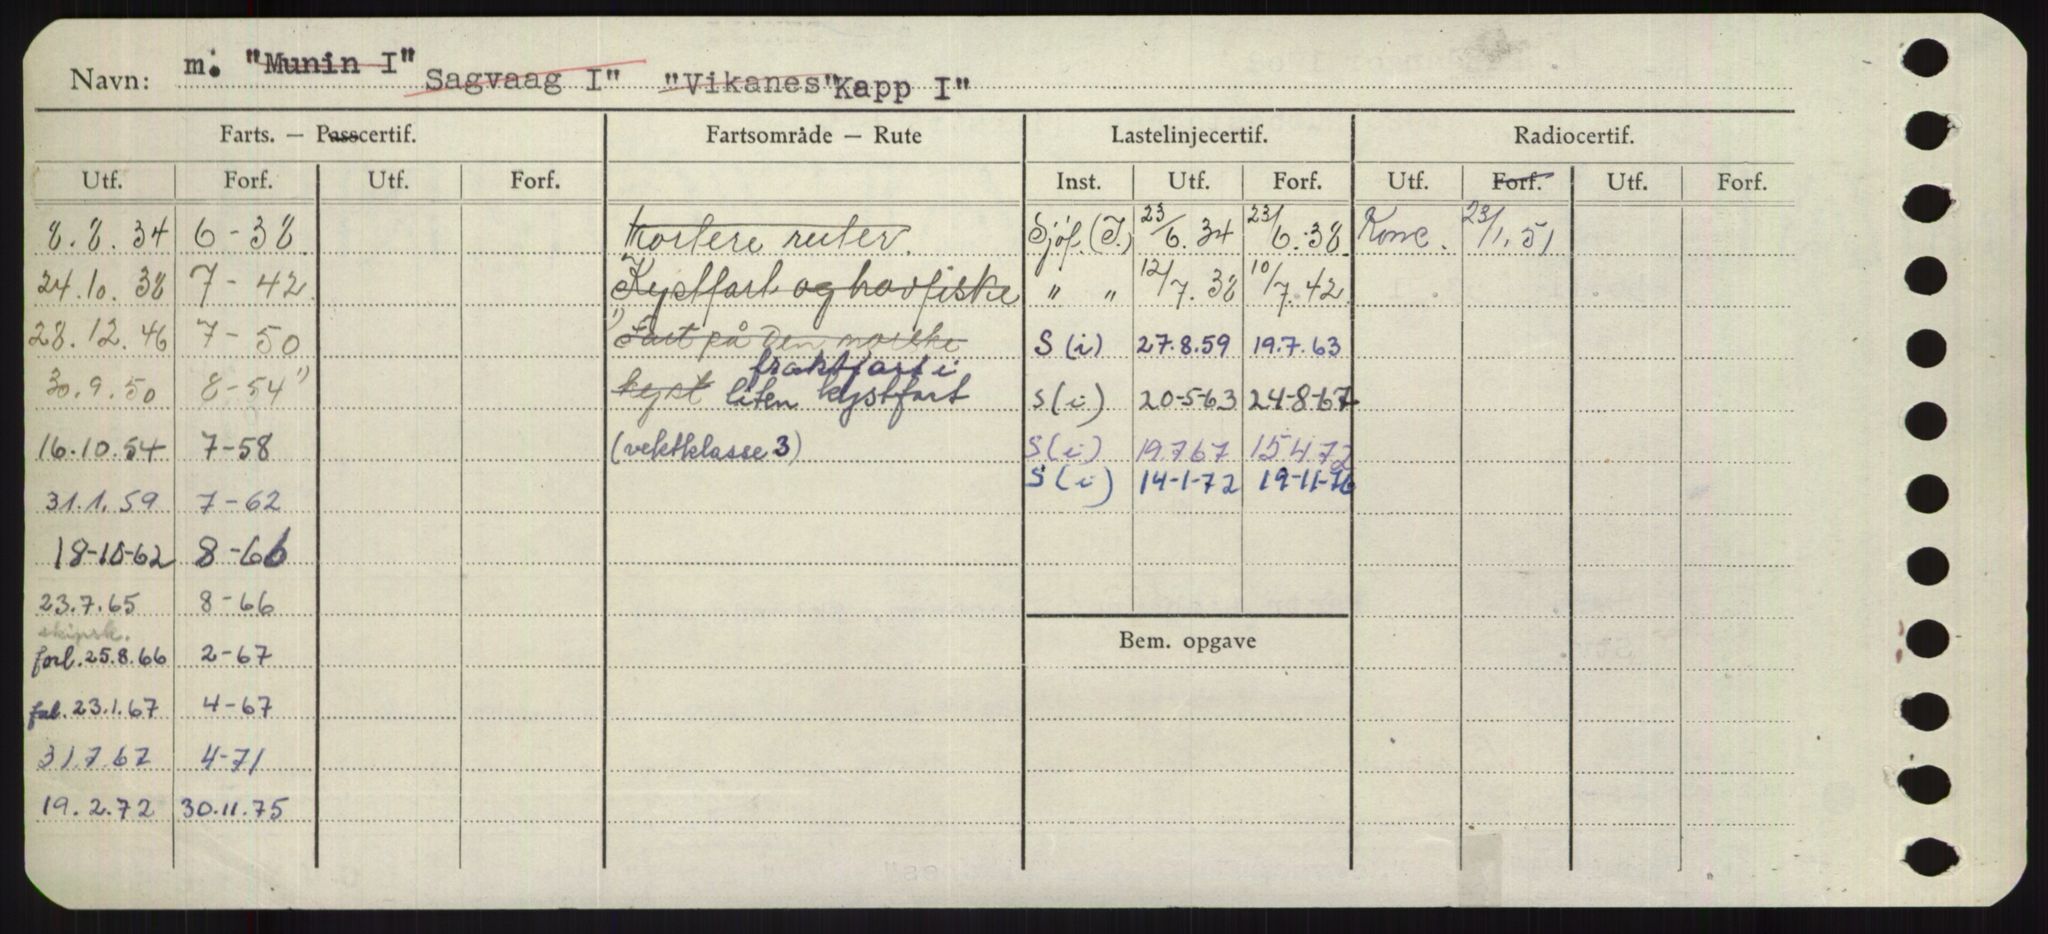 Navn: m. "Munin I" Sagvaag I" "Vikanes" Kapp I"
Farts. — Passcertif. Fartsområde — Rute Lastelinjecertif. Radiocertif.
Utf. Forf. Utf. Forf. Inst. Utf. Forf. Utf. Forf. Utf. Forf.
8.8.34 6-38 kortere ruter. Sjøf.(I.) 23/6.34 23/6.38 Konc. 23/1.51
24.10.38 7-42 Kystfart og havfiske " " 12/7.38 10/7.42
28.12.46 7-50 1) Fart på den norske S(i) 27.8.59 19.7.63
fraktfart i
30.9.50 8-54 1) kyst liten kystfart S(i) 20-5-63 24-8-67
16.10.54 7-58 (vektklasse 3) S(i) 19.7.67 15.4.72
S(i) 14-1-72 19-11-76
31.1.59 7-62
18-10-62 8-66
23.7.65 8-66
skipsk.
forl. 25.8.66 2-67
Bem. opgave
23.1.67 4-67
31.7.67 4-71
19.2.72 30.11.75